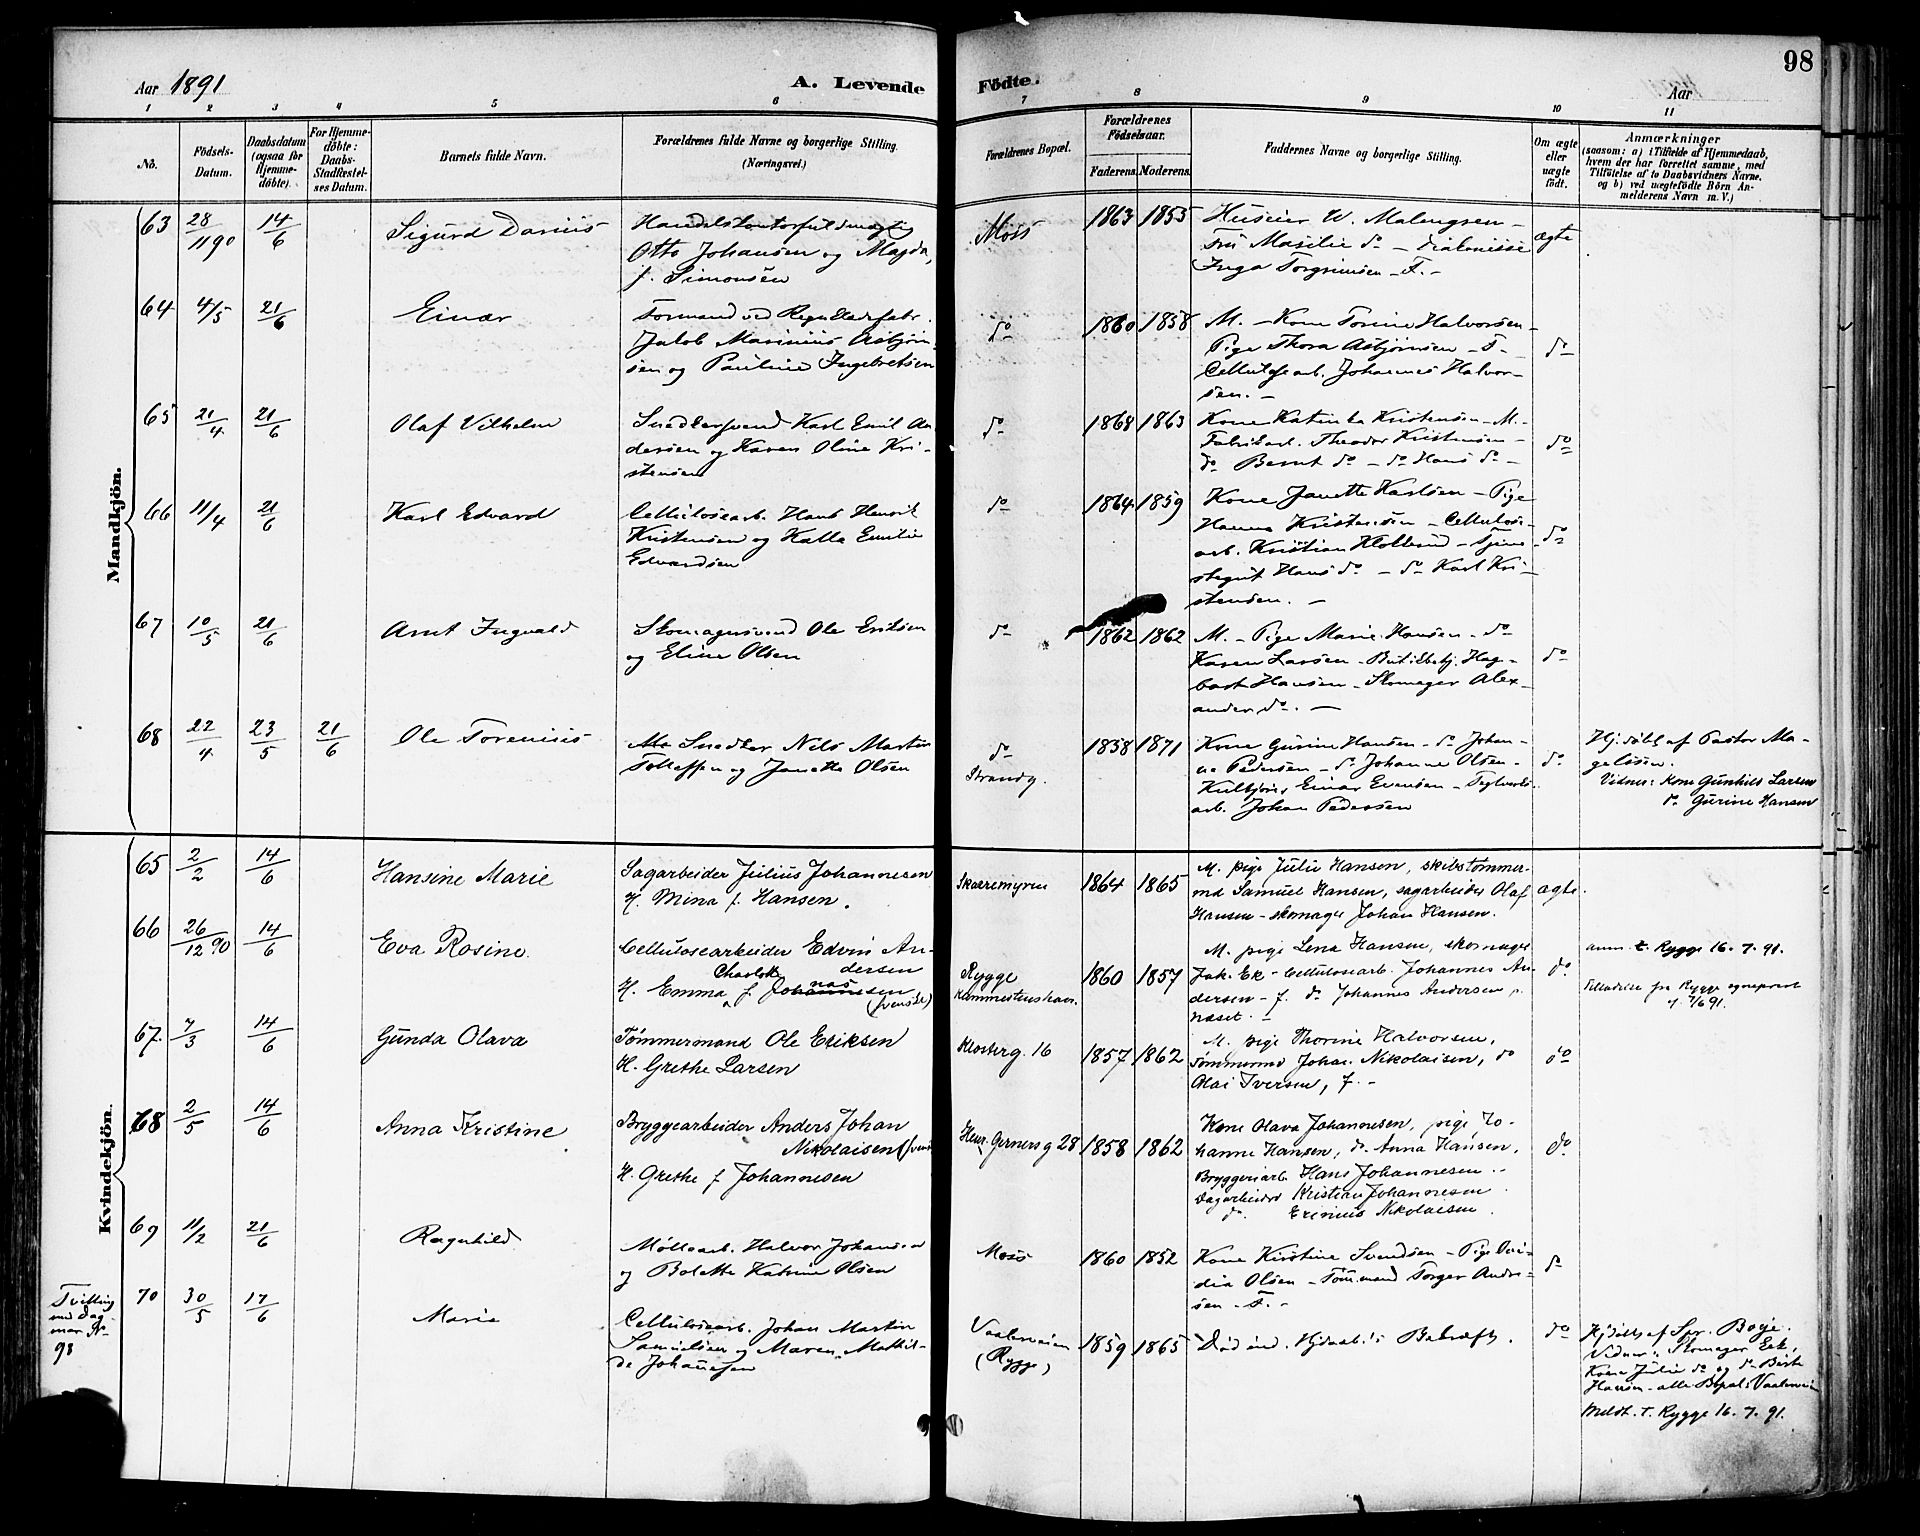 98
Aar 1891 A. Levende Fødte. Aar
1 2 3 4 5 6 7 8 9 10 11
No.
Fødsels-Datum.
Daabsdatum (ogsaa for Hjemme-døbte).
For Hjemme-døbte: Daabs-Stadfæstel-ses Datum.
Barnets fulde Navn.
Forældrenes fulde Navne og borgerlige Stilling.
(Næringsvei.)
Forældrenes Bopæl.
Forældrenes Fødselsaar.
Faderens. Moderens.
Faddernes Navne og borgerlige Stilling.
Om ægte eller uægte født.
Anmærkninger
(saasom: a) i Tilfælde af Hjemmedaab,
hvem der har forrettet samme, med
Tilføielse af to Daabsvidners Navne,
og b) ved uægtefødte Børn An-
melderens Navn m. V.)
Mandkjøn.
63 28/11 90 14/6 Sigurd Darius
Otto Johansen og Magda,
f. Simonsen
Moss 1863 1855
Inga Torgrimsen - F. -
ægte
64 4/5 21/6 Einar
Formand ved
Jakob Marinius Asbjørn-
sen og Pauline Ingebretsen
do 1860 1858
M. - Kone Torine Halvorsen -
Pige Thora Asbjørnsen - F. -
Cellulosearb. Johannes Halvor-
sen. -
do
65 21/4 21/6 Olaf Vilhelm
Snedkersvend Karl Emil An-
dersen og Karen Oline Kri-
stensen
do 1868 1863
Kone Katinka Kristensen - M. -
Fabrikarb. Theodor Kristensen -
do Bernt do - do Hans do -
do
66 11/4 21/6 Karl Edvard
Cellulosearb. Hans Henrik
Kristensen og Kalla Emilie
Edvardsen
do 1864 1859
Kone Janette Karlsen - Pige
Hanna Kristensen - Cellulose-
arb. Kristian - Tjene-
stegut Hans do - do Karl Kri-
stensen. -
do
67 10/5 21/6 Arnt Ingvald
Skomagersvend Ole Eriksen
og Eline Olsen
do 1862 1862
M. - Pige Marie Hansen - do
Karen Larsen - Butikbetj. Hag-
bart Hansen - Skomager Alex-
ander do. -
do
68 22/4 23/5 21/6 Ole Torenius
Snedker Nils Martin
Tollefsen og Janette Olsen
do
Strandg.
1858 1871
Kone Gurine Hansen - do Johan-
ne Pedersen - do Johanne Olsen -
Einar Evensen -
arb. Johan Pedersen
do
Hj.døbt af Pastor Ma-
gelssen.
Vidner: Kone Gunhild Larsen
do Gurine Hansen
Kvindekjøn.
65 2/2 14/6 Hansine Marie
Sagarbeider Julius Johannesen
H. Mina f. Hansen.
Skarremyren 1864 1865
M. pige Julie Hansen, skibstømmer-
md Samuel Hansen, sagarbeider Olaf
Hansen - skomager Johan Hansen.
ægte
66 26/12 90 14/6 Eva Rosine.
Cellulosearbeider Edvin An-
dersen
H. Emma Charlotte f. Johannesen
nas
(svenske)
Rygge
1860 1857
M. pige Lena Hansen, skomager
Jak. Ek - Cellulosearb. Johannes An-
dersen - f. do Johannes Andersen p.
næset. -
do
anm. t. Rygge 16. 7. 91.
Tilladelse fra Rygge sogneprest
67. 7/3 14/6 Gunda Olava
Tømmermand Ole Eriksen
H. Grethe Larsen
Klosterg. 16 1857 1862
M. pige Thorine Halvorsen,
Tømmermd Johan Nikolaisen, do
Olai Iversen, f. -
do
68 2/5 14/6 Anna Kristine
Bryggearbeider Anders Johan
Nikolaisen (svensk
H. Grethe f Johannesen
Henr. Gerners g 28 1858 1862
Kone Olava Johannesen, pige Jo-
hanne Hansen, do Anna Hansen,
Bryggeriarb Hans Johannesen -
Dagarbeider Kristian Johannesen
do. Erinius Nikolaisen.
do
69 11/2 21/6 Ragnhild
Møllearb. Halvor Johansen
og Bolette Katrine Olsen
Moss 1860 1852
Kone Kirstine Svendsen - Pige Ovi-
dia Olsen - Tømmand Torger Andre-
sen - F. -
do
Tvilling
med Dag-
mar No
98
70 30/5 17/6 Marie
Cellulosearb. Johan Martin
Samuelsen og Maren Mathil-
de Johansen
Vaalerveien
(Rygge)
1859 1865
Død ind. Hjdaab. s Bekræft.
do
Hjdøbt af Spr. Boje.
Vidner: Skomager Eek,
Kone Julie do og do Berte
Hansen - alle Bopæl: Vaalerveien
Meldt. t. Rygge 16. 7. 91.